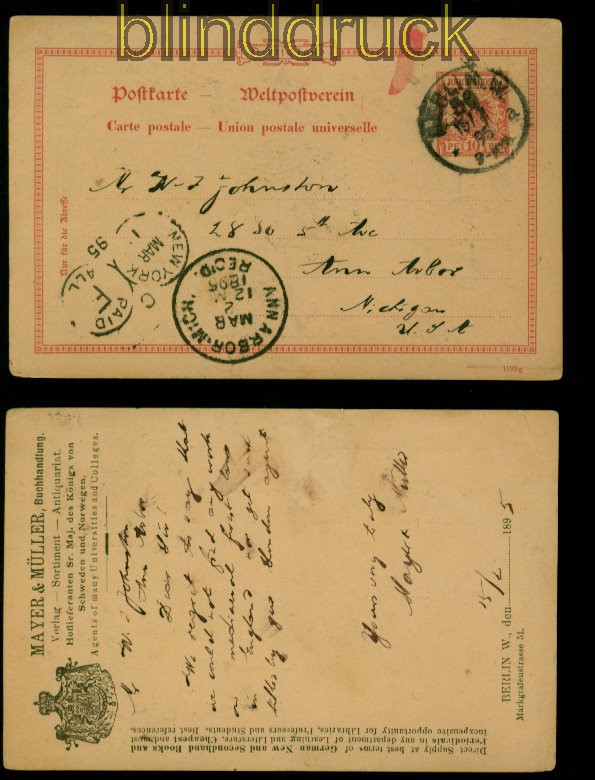 blinddruck
Postkarte — Weltpostverein
Carte postale — Union postale universelle
Nur für die Adresse
Mr W J Johnston
2830 5th Ave
Ann Arbor
Michigan
U.S.A
NEW YORK
MAR
1
95
PAID
ALL
C
ANN ARBOR, MICH.
MAR
2
12 M
1895
REC'D.
MAYER & MÜLLER, Buchhandlung.
Verlag — Sortiment — Antiquariat.
Hoflieferanten Sr. Maj. des Königs von
Schweden und Norwegen.
Agents of many Universities and Colleges.
Johnston
Ann Arbor
Dear Sir!
We regret to say that
we could not find any work
on mechanical
in England
London agent
Yours very truly
Mayer & Müller
BERLIN W., den 15/2 1895
Markgrafenstrasse 51.
Direct Supply at best terms of German New and Secondhand Books and
Periodicals in any department of Learning and Literature. Cheapest and most
inexpensive opportunity for Libraries, Professors and Students. Best references.